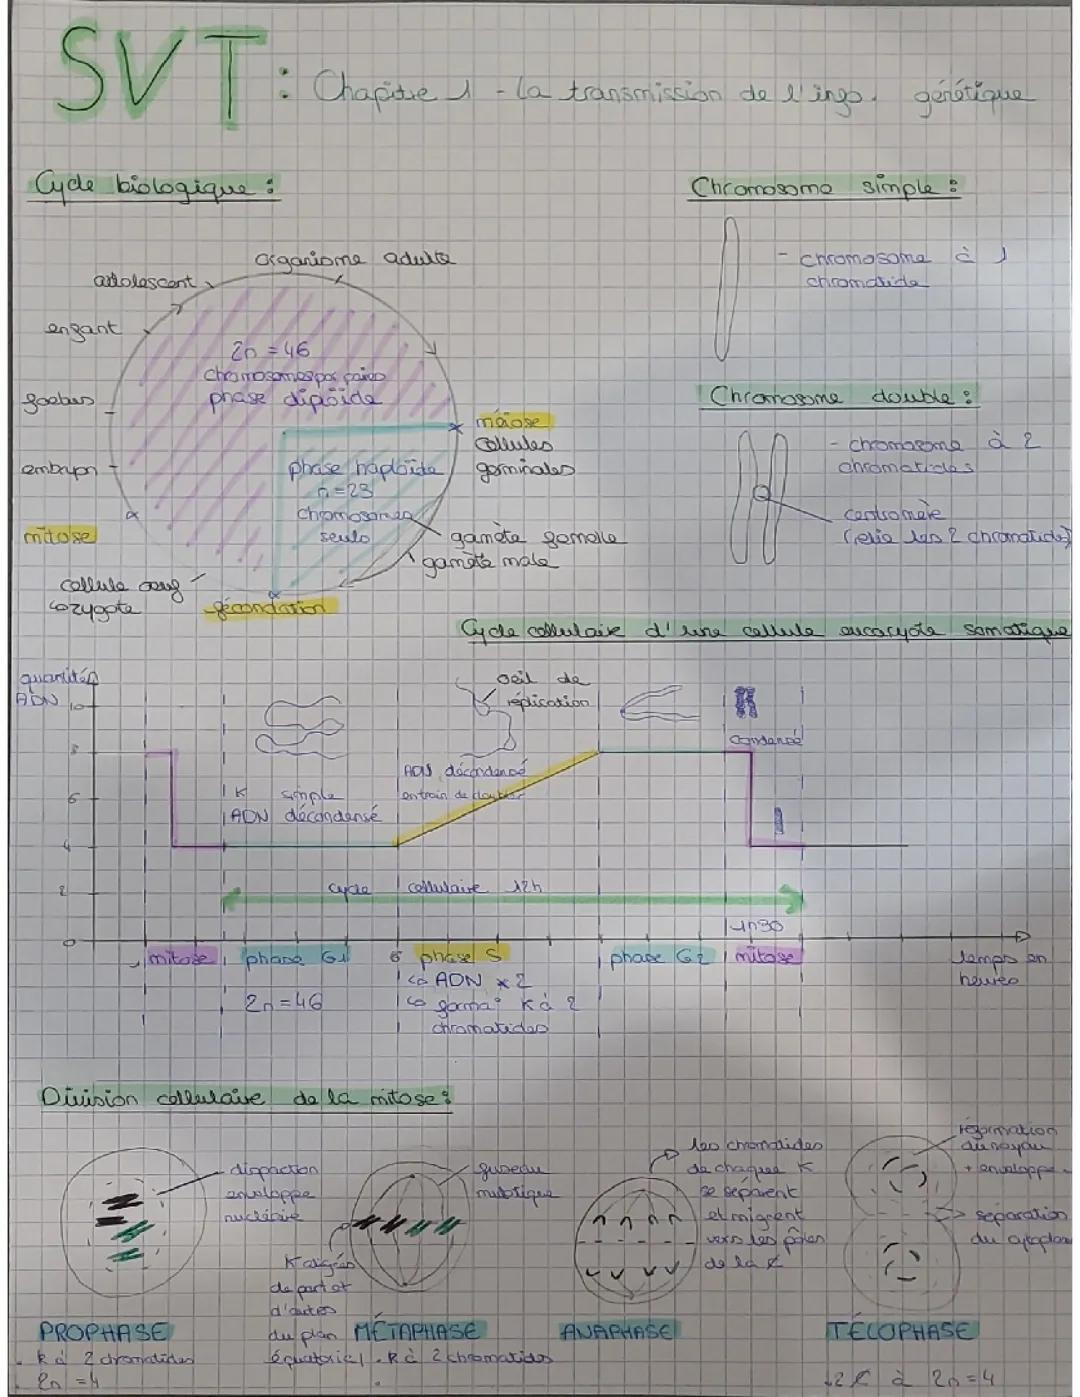 SVT : Chapitre 1 - La transmission de l'info. génétique
Cycle biologique :
organisme adulte
adolescent
enfant
foetus
embryon
mitose
cellule oeuf
zygote
fécondation
2n = 46
chromosomes par paires
phase diploïde
phase haploïde
n = 23
chromosomes
seuls
méiose
cellules
germinales
gamète femelle
gamète male
Chromosome simple :
- chromosome à 1
chromatide
Chromosome double :
- chromosome à 2
chromatides
centromère
(relie les 2 chromatides)
Cycle cellulaire d'une cellule eucaryote somatique
quantité
ADN
10
8
6
4
2
0
K simple
ADN décondensé
oeil de
réplication
ADN décondensé
entrain de doubler
condensé
cycle cellulaire 12h
1h30
mitose
phase G1
6
phase S
phase G2
mitose
temps en
heures
2n = 46
↳ ADN x 2
↳ forma° K à 2
chromatides
Division cellulaire de la mitose :
enveloppe
nucléaire
fuseau
mitotique
de part et
d'autres
du plan
équatorial
les chromatides
de chaque K
se séparent
et migrent
vers les pôles
de la ¢
réformation
du noyau
+ enveloppe
séparation
du cytoplasm
PROPHASE
. K à 2 chromatides
. 2n = 4
MÉTAPHASE
. K à 2 chromatides
ANAPHASE
TÉLOPHASE
2 ¢ à 2n = 4